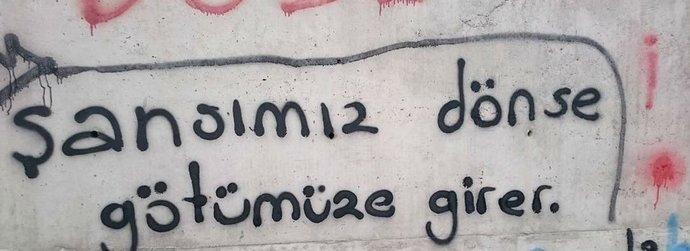 şansımız dönse
götümüze girer.